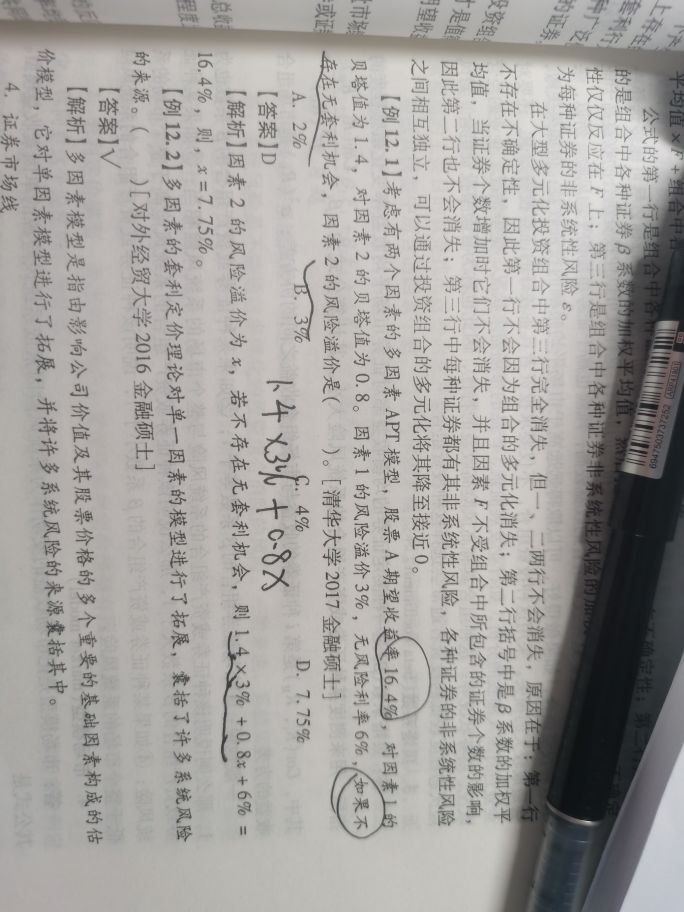 平均值×F+组合中
公式的第一行是组合中各
的是组合中各种证券β系数的加权平均值,
性仅仅反应在F上;第三行是组合中各种证券非系统性风险的加
为每种证券的非系统性风险ε。
在大型多元化投资组合中第三行完全消失,但一、二两行不会消失,原因在于:第一行
不存在不确定性,因此第一行不会因为组合的多元化消失;第二行括号中是β系数的加权平
均值,当证券个数增加时它们不会消失,并且因素F不受组合中所包含的证券个数的影响,
因此第二行也不会消失;第三行中每种证券都有其非系统性风险,各种证券的非系统性风险
之间相互独立,可以通过投资组合的多元化将其降至接近0。
【例12.1】考虑有两个因素的多因素APT模型,股票A期望收益率16.4%,对因素1的
贝塔值为1.4,对因素2的贝塔值为0.8。因素1的风险溢价3%,无风险利率6%,如果不
存在无套利机会,因素2的风险溢价是( )。[清华大学2017金融硕士]
A. 2% B. 3% C. 4% D. 7.75%
1.4×3%+0.8x
【答案】D
【解析】因素2的风险溢价为x,若不存在无套利机会,则1.4×3%+0.8x+6%=
16.4%,则,x=7.75%。
【例12.2】多因素的套利定价理论对单一因素的模型进行了拓展,囊括了许多系统风险
的来源。( )[对外经贸大学2016金融硕士]
【答案】√
【解析】多因素模型是指由影响公司价值及其股票价格的多个重要的基础因素构成的估
价模型,它对单因素模型进行了拓展,并将许多系统风险的来源囊括其中。
4. 证券市场线